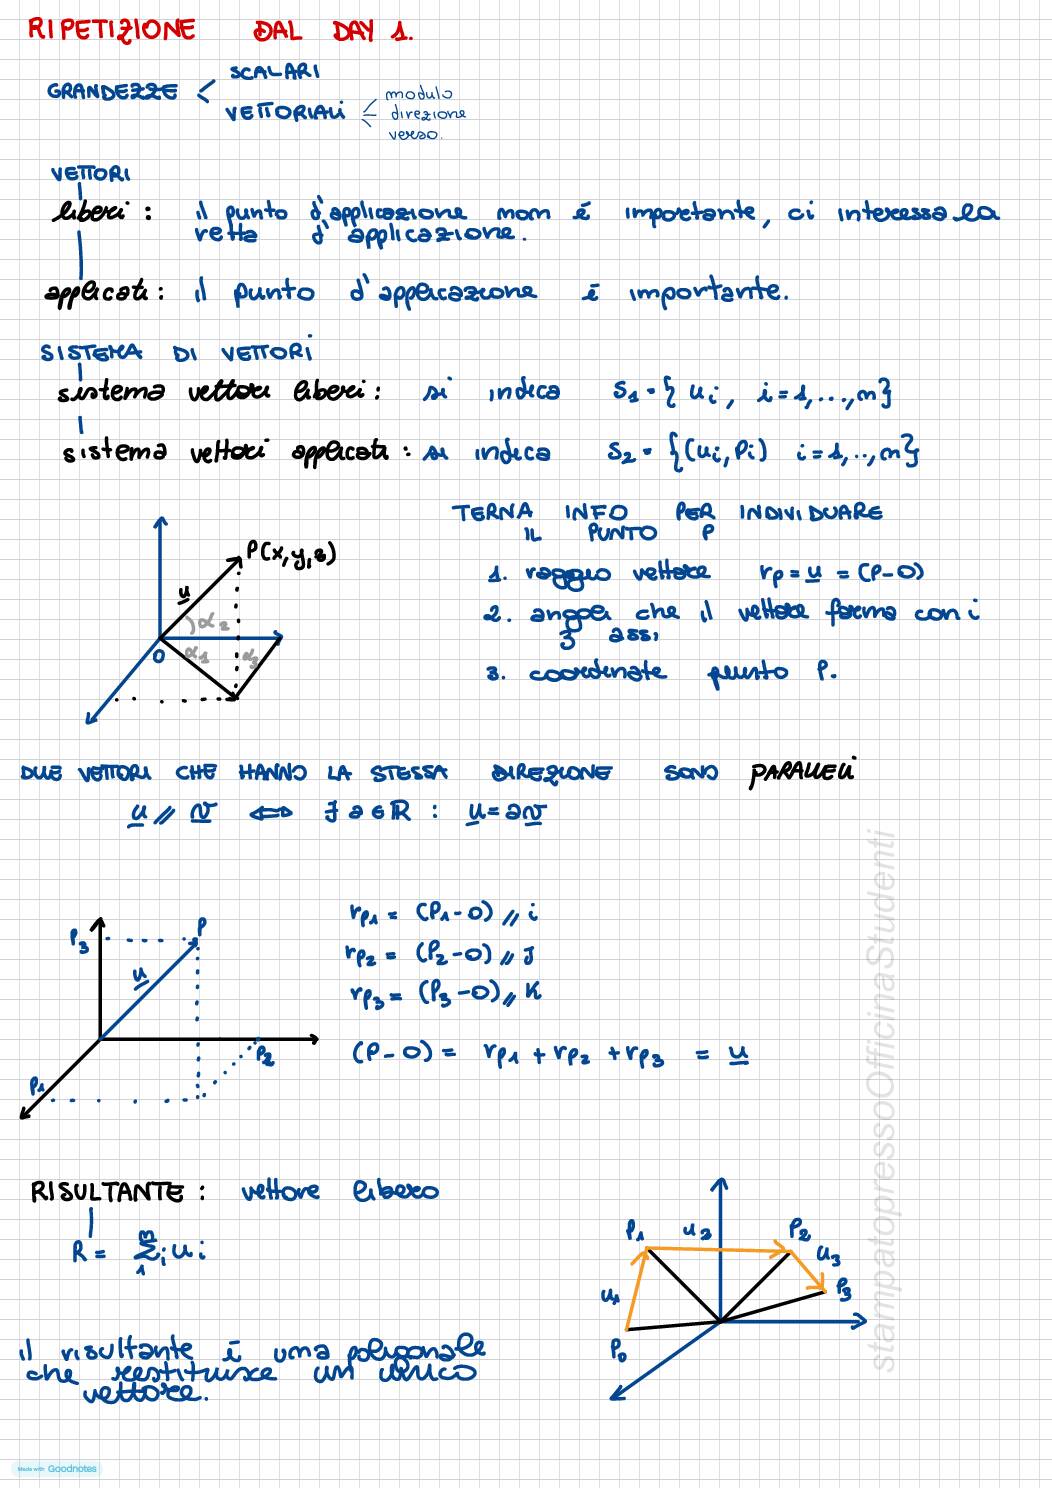 RIPETIZIONE DAL DAY 1.
GRANDEZZE < SCALARI
VETTORIALI
modulo
direzione
verso.
VETTORI
liberi : il punto d'applicazione non è importante, ci interessa la
retta d'applicazione.
applicati : il punto d'applicazione è importante.
SISTEMA DI VETTORI
sistema vettori liberi : si indica S1 = { ui, i = 1, ..., n }
sistema vettori applicati : si indica S2 = {(ui, Pi) i = 1, .., n }
TERNA INFO PER INDIVIDUARE
IL PUNTO P
1. raggio vettore rp = u = (P-O)
2. angoli che il vettore forma con i
3 assi
3. coordinate punto P.
P(x,y,z)
u
α2
O
α1
α3
DUE VETTORI CHE HANNO LA STESSA DIREZIONE SONO PARALLELI
u // v ⇔ ∃ a ∈ ℝ : u = av
P3
P
u
P2
P1
rp1 = (P1-O) // i
rp2 = (P2-O) // J
rp3 = (P3-O) // K
(P-O) = rp1 + rp2 + rp3 = u
RISULTANTE : vettore libero
R = Σ1^n i ui
il risultante è una poligonale
che restituisce un unico
vettore.
P1
u2
P2
u3
P3
u1
P0
stampatopressoOfficinaStudenti
Made with Goodnotes